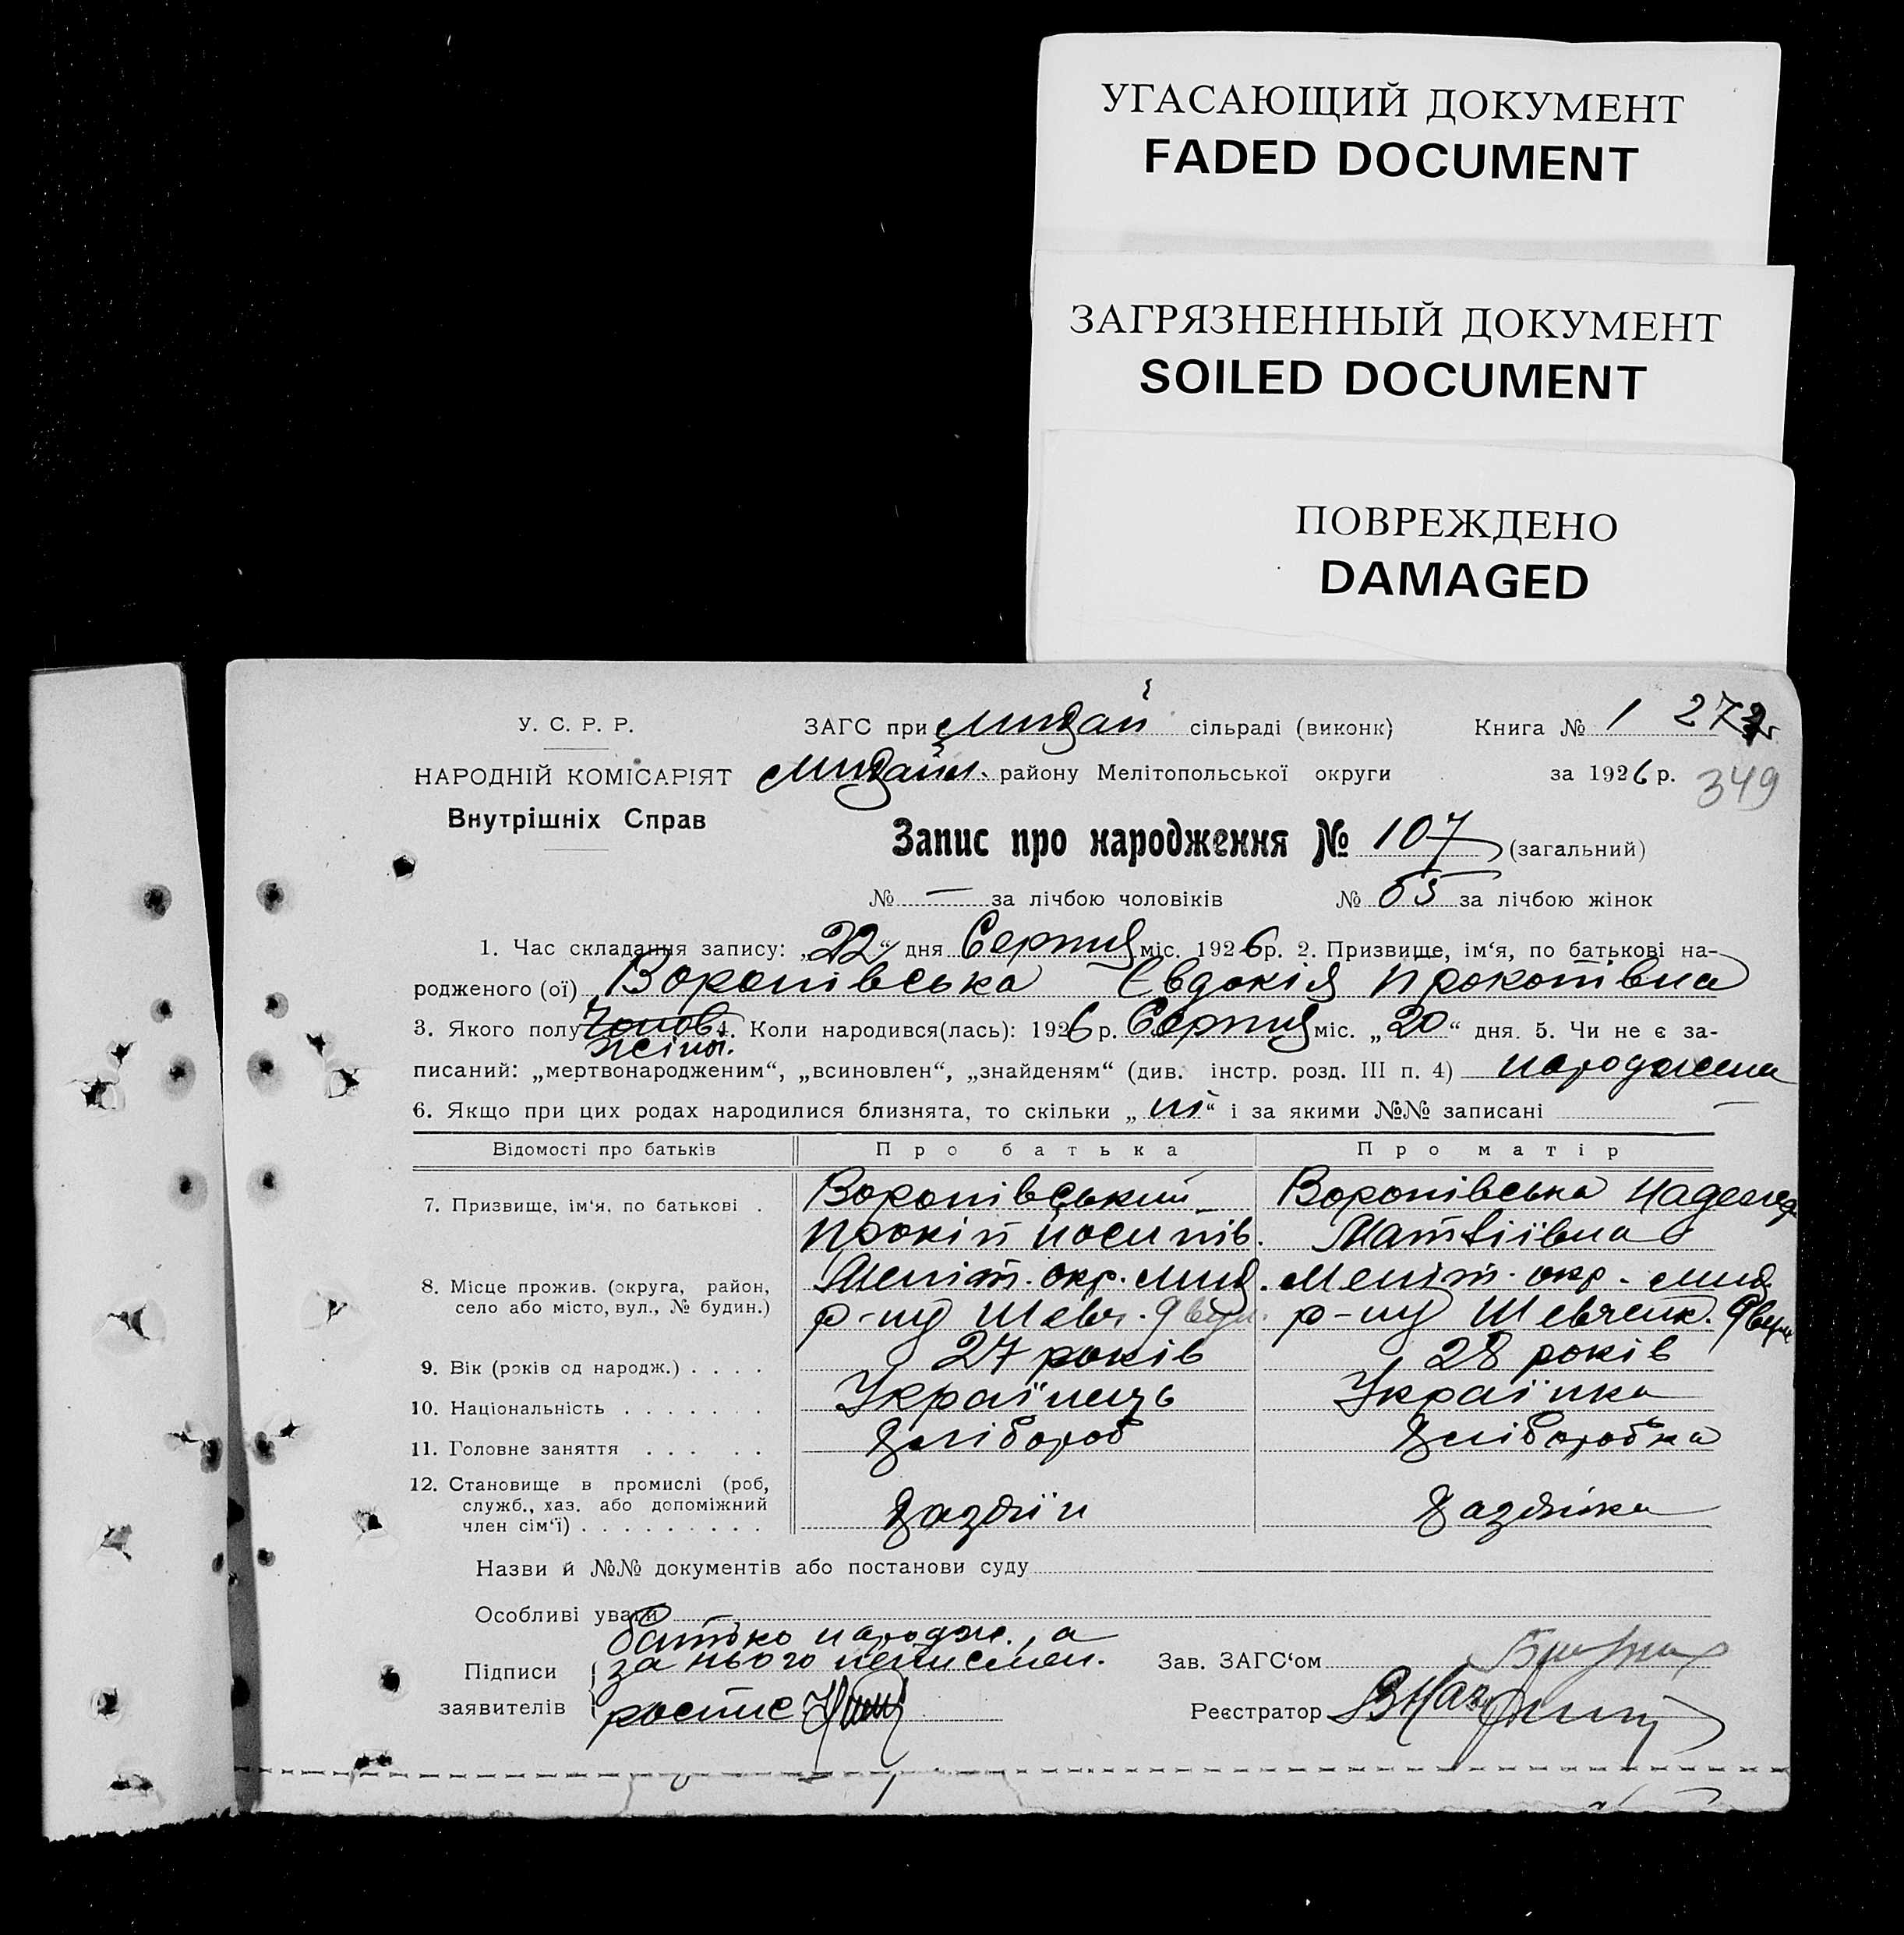 УГАСАЮЩИЙ ДОКУМЕНТ
FADED DOCUMENT
ЗАГРЯЗНЕННЫЙ ДОКУМЕНТ
SOILED DOCUMENT
ПОВРЕЖДЕНО
DAMAGED
У. С. Р. Р. ЗАГС при сільраді (виконк) Книга № 1
НАРОДНІЙ КОМІСАРІЯТ району Мелітопольської округи за 1926 р. 349
Внутрішніх Справ
Запис про народження № 107 (загальний)
№ — за лічбою чоловіків № 55 за лічбою жінок
1. Час складання запису: „22“ дня Серпня міс. 1926 р. 2. Призвище, ім‘я, по батькові на-
родженого (ої) Воропівська Євдокія Прокопівна
3. Якого полу жіноч. 4. Коли народився(лась): 1926 р. Серпня міс. „20“ дня. 5. Чи не є за-
писаний: „мертвонародженим“, „всиновлен“, „знайденям“ (див. інстр. розд. III п. 4) народжена
6. Якщо при цих родах народилися близнята, то скільки „ні“ і за якими №№ записані —
Відомості про батьків Про батька Про матір
7. Призвище, ім‘я, по батькові . Воропівський Воропівська Надежд
Прокіп Йосипів. Матвіївна
8. Місце прожив. (округа, район, Меліт. окр. Меліт. окр.
село або місто, вул., № будин.) р-ну Шевч. р-ну Шевченк.
9. Вік (років од народж.) . . . . 27 років 28 років
10. Національність . . . . . . . Українець Українка
11. Головне заняття . . . . . Хлібороб Хліборобка
12. Становище в промислі (роб,
служб., хаз. або допоміжний Хазяїн Хазяйка
член сім‘ї) . . . . . . . . .
Назви й №№ документів або постанови суду
Особливі уваги
батько народж., а
Підписи за нього неписмен. Зав. ЗАГС‘ом
заявителів роспис Реєстратор